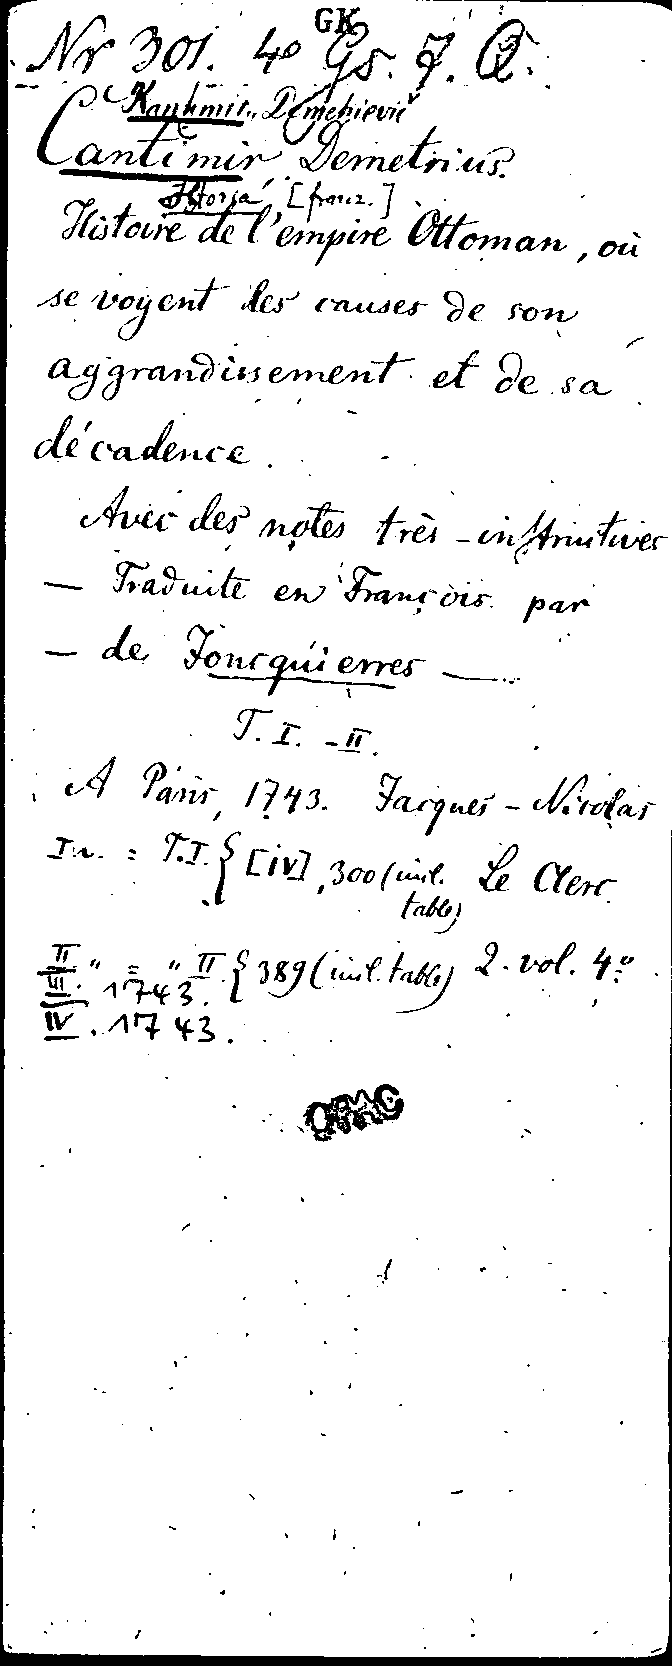 GK
Nr 301. 4° Gs. 7. Q.
Kantemir, Demetrievič
Cantimir, Demetrius.
Istorja [franz.]
Histoire de l'empire Ottoman, où
se voyent les causes de son
aggrandissement et de sa
décadence.
Avec des notes très-instructives
— Traduite en François par
— de Joncquierres —
T. I. - II.
A Paris, 1743. Jacques-Nicolas
In. = T.I. { [IV], 300 (incl. Le Clerc
table)
II " = " II { 389 (incl. table) 2. vol. 4°
III. 1743.
IV. 1743.
OMC